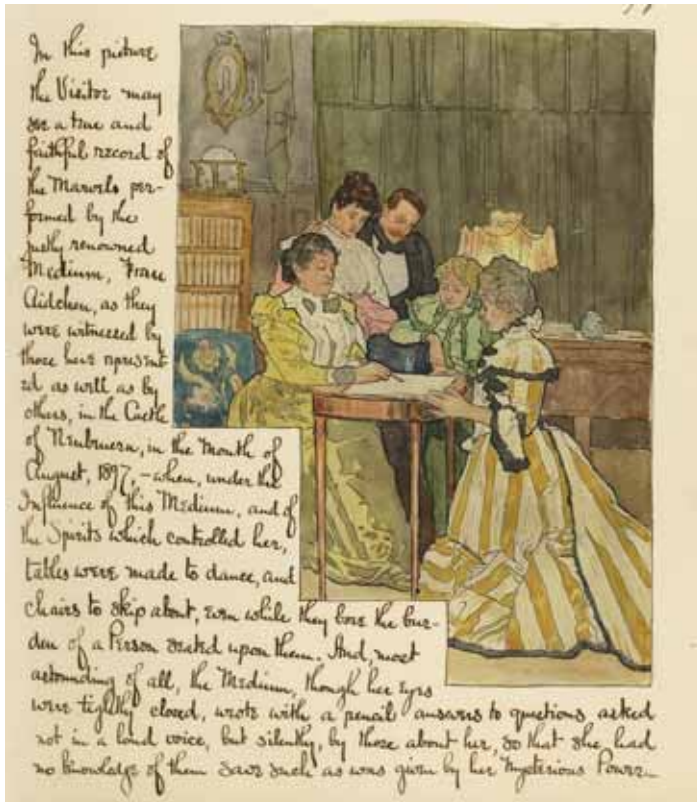 In this picture
the Visitor may
see a true and
faithful record of
the Marvels per-
formed by the
justly renowned
Medium, Frau
Aidchen, as they
were witnessed by
those here represent-
ed as well as by
others, in the Castle
of Neubeuern, in the Month of
August, 1897, – when, under the
Influence of this Medium, and of
the Spirits which controlled her,
tables were made to dance, and
chairs to skip about, even while they bore the bur-
den of a Person seated upon them. And, most
astounding of all, the Medium, though her Eyes
were tightly closed, wrote with a pencil answers to questions asked
not in a loud voice, but silently, by those about her, so that she had
no knowledge of them save such as was given by her Mysterious Power.